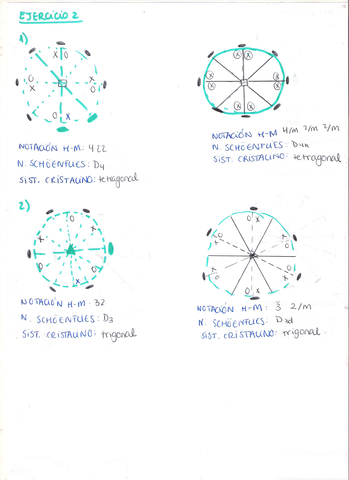 EJERCICIO 2
1)
NOTACIÓN H-M: 422
N. SCHÖENFLIES: D4
SIST. CRISTALINO: tetragonal
NOTACIÓN H-M 4/m 2/m 2/m
N. SCHÖENFLIES: D4h
SIST. CRISTALINO: tetragonal
2)
NOTACIÓN H-M: 32
N. SCHÖENFLIES: D3
SIST. CRISTALINO: trigonal
NOTACIÓN H-M: 3̄ 2/m
N. SCHÖENFLIES: D3d
SIST. CRISTALINO: trigonal.